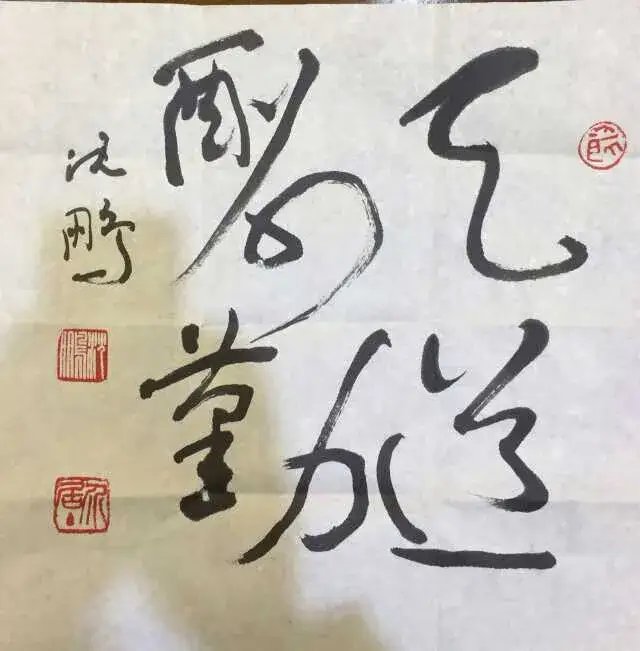 天道
酬勤
沈鹏